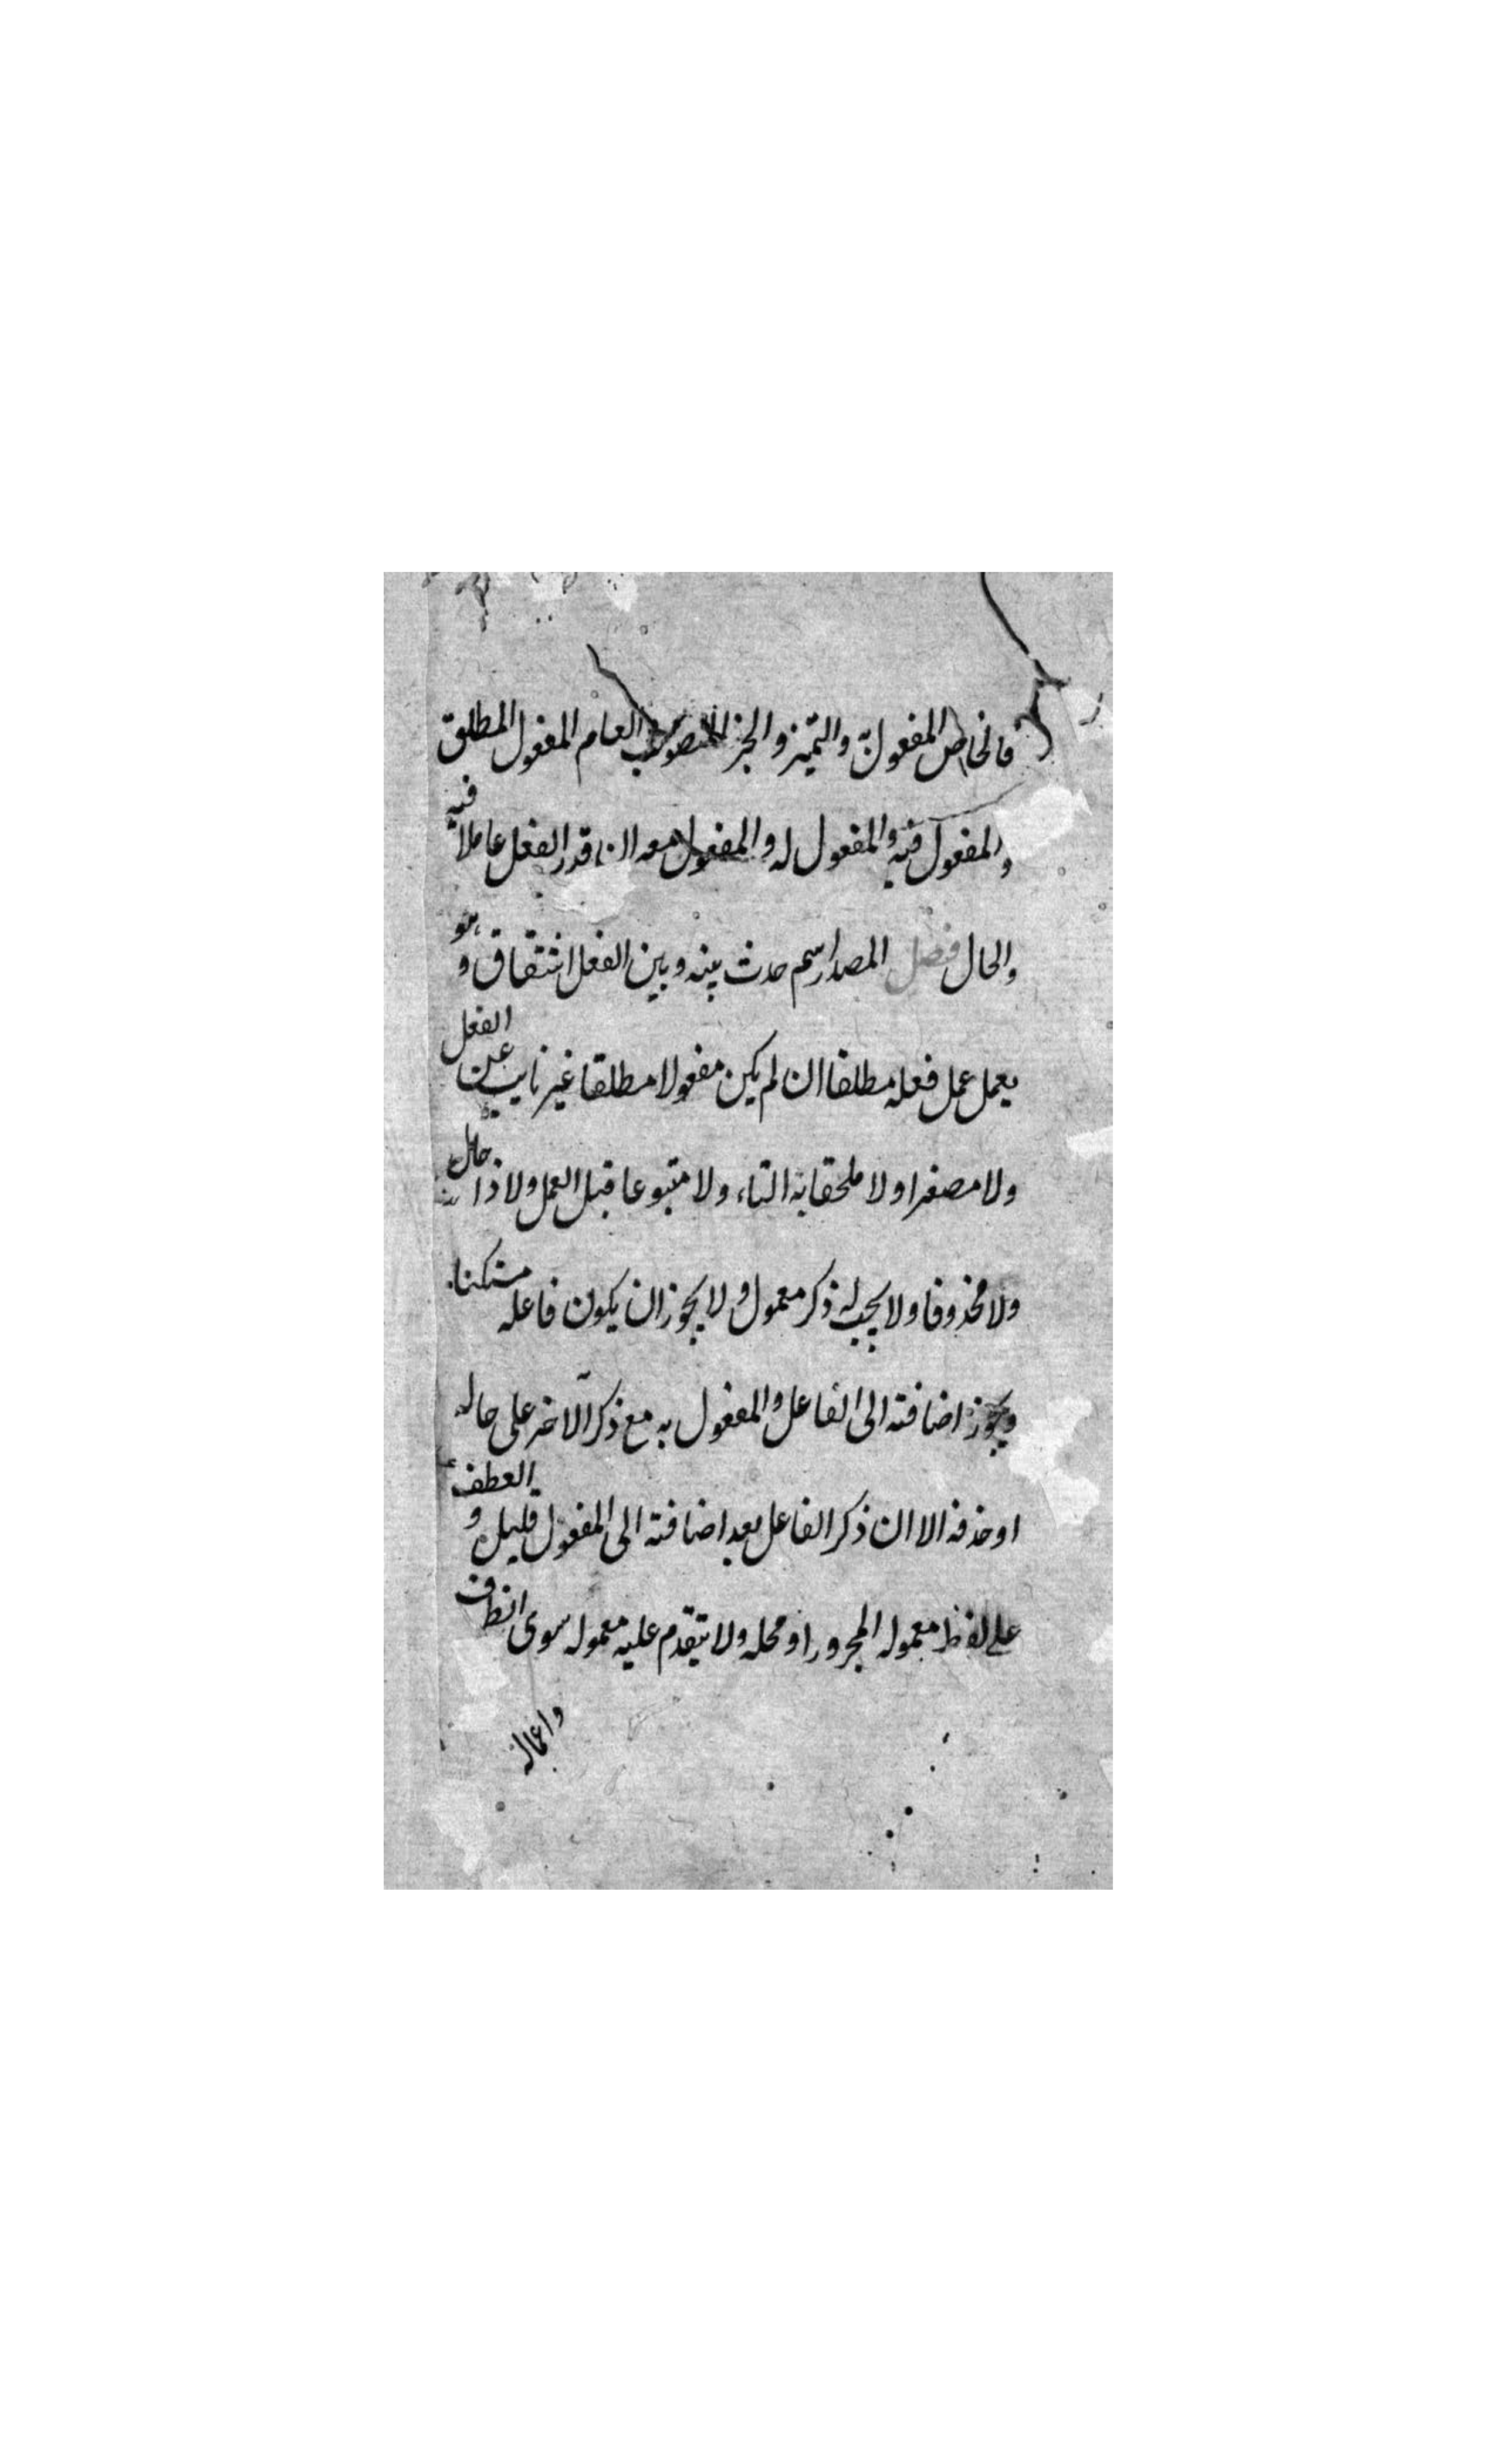 فالخاص المفعول به والتميز والخبر المنصوب العام المفعول المطلق
والمفعول فيه والمفعول له والمفعول معه ان قدر الفعل عاملا فيه
والحال فصل المصدر اسم حدث بينه وبين الفعل اشتقاق وهو
يعمل عمل فعله مطلقا ان لم يكن مفعولا مطلقا غير نايب عن الفعل
ولا مصغرا ولا ملحقا به التاء ولا متبوعا قبل العمل ولا ذا حال
ولا محذوفا ولا يجب له ذكر معمول ولا يجوز ان يكون فاعله مستكنا
ويجوز اضافته الى الفاعل والمفعول به مع ذكر الآخر على حاله
او حذفه الا ان ذكر الفاعل بعد اضافته الى المفعول قليل والعطف
على لفظ معموله المجرور او محله ولا يتقدم عليه معموله سوى الظرف
واعماله